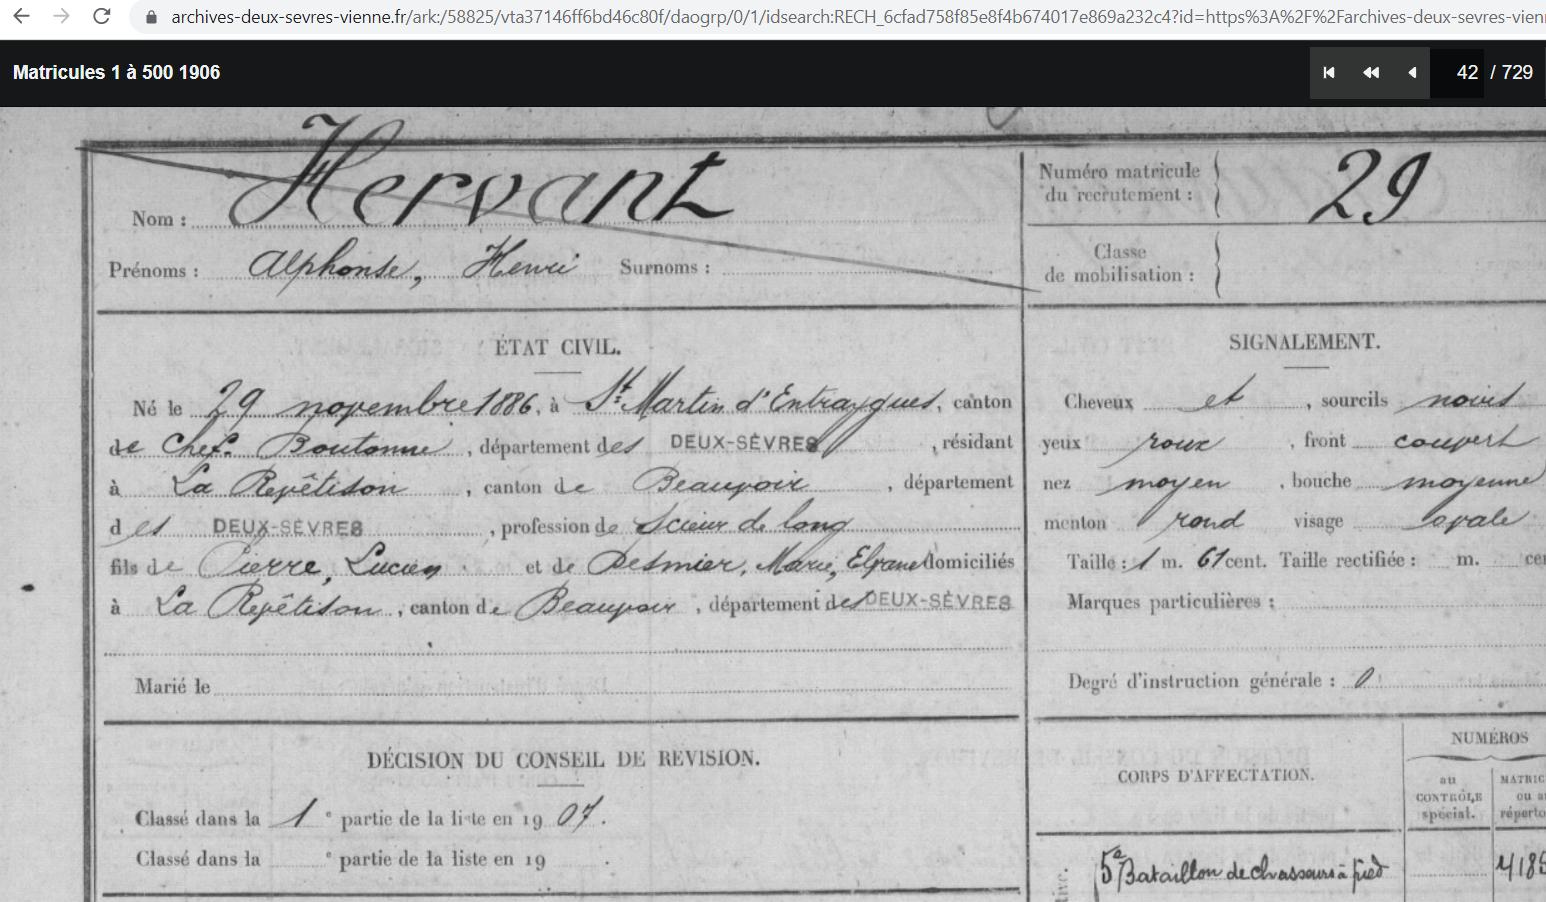 archives-deux-sevres-vienne.fr/ark:/58825/vta37146ff6bd46c80f/daogrp/0/1/idsearch:RECH_6cfad758f85e8f4b674017e869a232c4?id=https%3A%2F%2Farchives-deux-sevres-vien
Matricules 1 à 500 1906
42 / 729
Nom : Hervant
Prénoms : Alphonse, Henri Surnoms :
Numéro matricule
du recrutement : 29
Classe
de mobilisation :
ÉTAT CIVIL.
Né le 29 novembre 1886, à St. Martin d'Entraygues, canton
de Chef. Boutonne, département des DEUX-SÈVRES, résidant
à La Repêtison, canton de Beauvoir, département
des DEUX-SÈVRES, profession de scieur de long
fils de Pierre, Lucien et de Desmier, Marie, domiciliés
à La Repêtison, canton de Beauvoir, département des DEUX-SÈVRES
Marié le
SIGNALEMENT.
Cheveux et, sourcils noirs
yeux roux, front couvert
nez moyen, bouche moyenne
menton rond visage ovale
Taille : 1 m. 61 cent. Taille rectifiée : m. cen
Marques particulières :
Degré d'instruction générale : 0
DÉCISION DU CONSEIL DE REVISION.
Classé dans la 1e partie de la liste en 1907.
Classé dans la e partie de la liste en 19 .
CORPS D'AFFECTATION.
NUMÉROS
au
CONTRÔLE
spécial.
MATRIC
ou a
réperto
5e Bataillon de chasseurs à pied
tive.